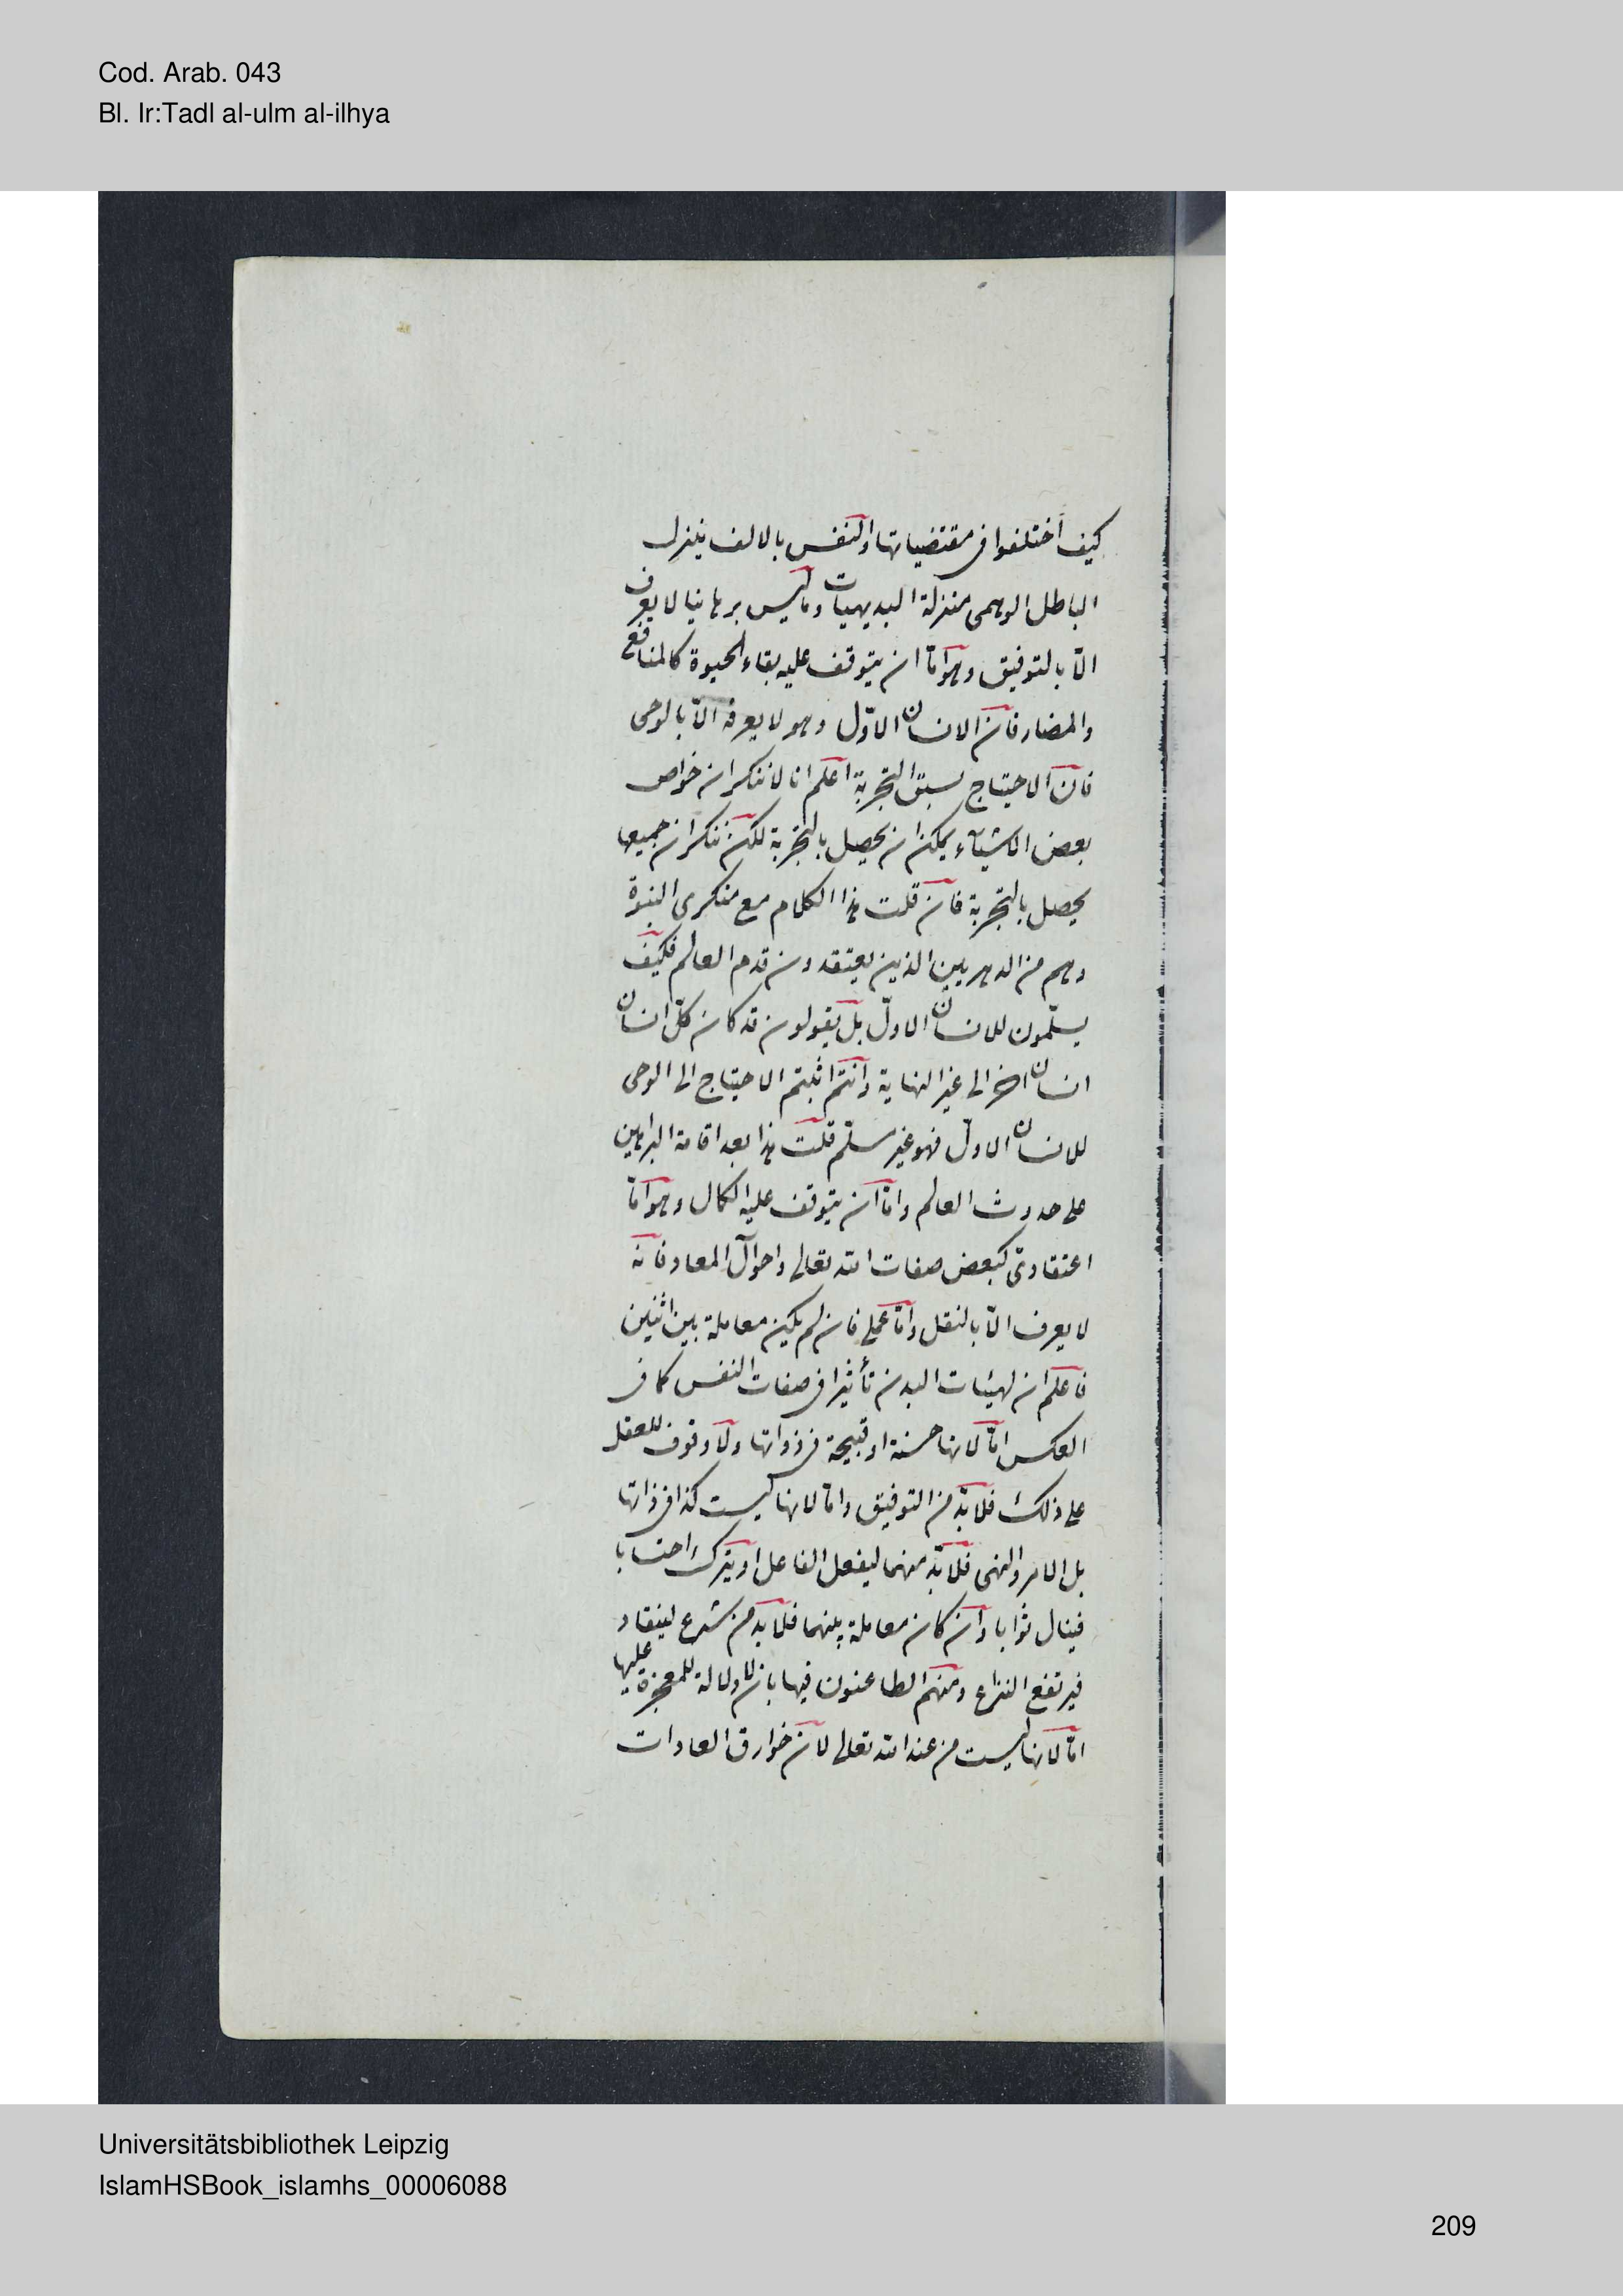 Cod. Arab. 043
Bl. Ir:Tadl al-ulm al-ilhya
كيف اختلفوا فى مقتضياتها والنفس بالالف ينزل
الباطل الوهمى منزلة البديهيات وما ليس برهانيا لا يعرف
الّا بالتوفيق وهو امّا ان يتوقف عليه بقاء الحيوة كالمنافع
والمضار فان الانسان الاوّل وهو لا يعرفه الّا بالوحى
فان الاحتياج يسبق التجربة اعلم انا لا ننكر ان خواص
بعض الاشياء يمكن ان يحصل بالتجربة لكن ننكر ان جميعها
يحصل بالتجربة فان قلت هذا الكلام مع منكرى النبوة
وهم من الدهريين الذين يعتقدون قدم العالم فكيف
يسلّمون للانسان الاول بل يقولون قد كان كلّ انسان
انسان اخر الى غير النهاية وانتم اثبتم الاحتياج الى الوحى
للانسان الاول فهو غير مسلّم قلت هذا بعد اقامة البراهين
على حدوث العالم وامّا ان يتوقف عليه الكمال وهو امّا
اعتقادىّ كبعض صفات الله تعالى واحوال المعاد فانه
لا يعرف الّا بالنقل وامّا عملى فان لم يكن معاملة بين اثنين
فاعلم ان لهيئات البدن تأثيرا فى صفات النفس كما فى
العكس امّا لانها حسنة او قبيحة فى ذواتها ولا وقوف للعقل
على ذلك فلا بدّ من التوفيق وامّا لانها ليست كذا فى ذاتها
بل الامر والنهى فلا بدّ منهما ليفعل الفاعل او يترك احتسابا
فينال ثوابا وان كان معاملة بينهما فلا بد من شرع لينقاد
فيرتفع النزاع ومنهم الطاعنون فيها بان لا دلالة للمعجزة عليها
امّا لانها ليست من عند الله تعالى لان خوارق العادات
Universitätsbibliothek Leipzig
IslamHSBook_islamhs_00006088
209